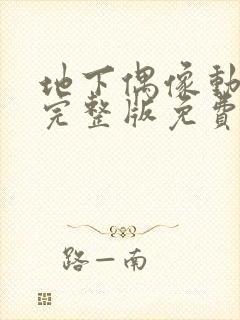 地下偶像動
完整版免費
路一南